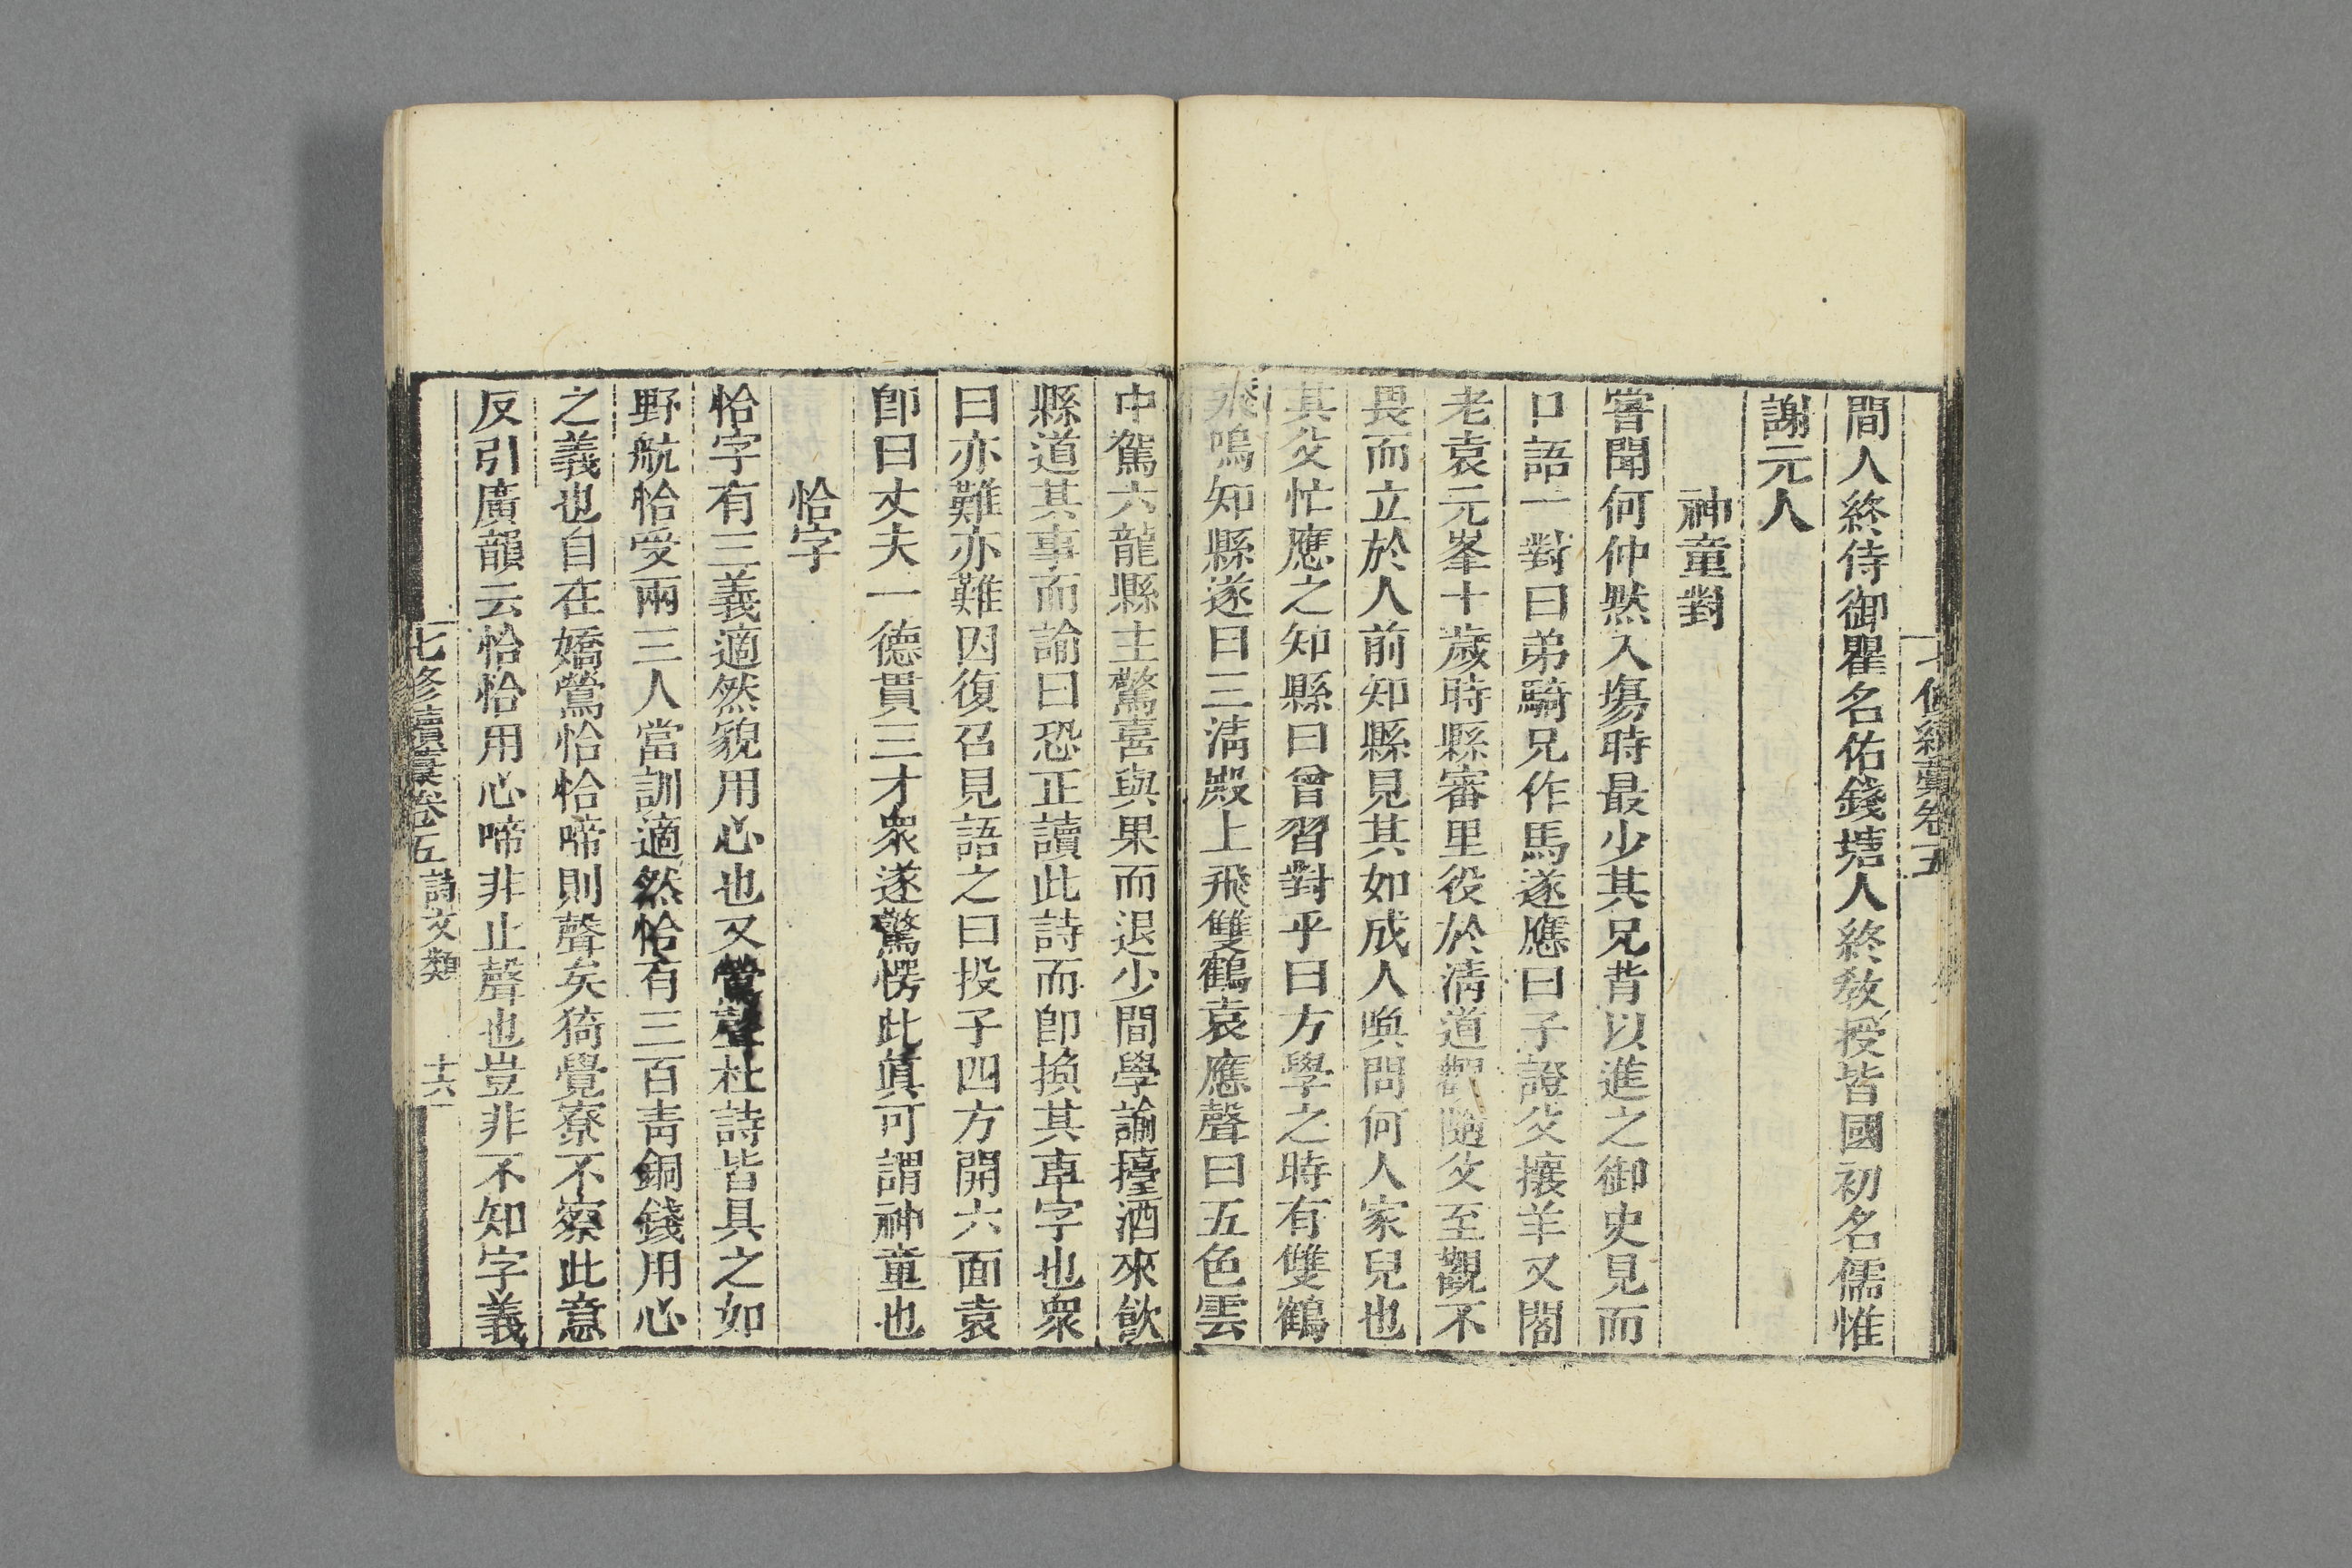 七修續藁卷五
間人終侍御瞿名佑錢塘人終教授皆國初名儒惟
謝元人
神童對
嘗聞何仲默入塲時最少其兄背以進之御史見而
口語一對曰弟騎兄作馬遂應曰子證父攘羊又閣
老袁元峯十歲時縣審里役於淸道觀隨父至觀不
畏而立於人前知縣見其如成人喚問何人家兒也
其父忙應之知縣曰曾習對乎曰方學之時有雙鶴
飛鳴知縣遂曰三淸殿上飛雙鶴袁應聲曰五色雲
中駕六龍縣主驚喜與果而退少間學諭擡酒來飲
縣道其事而諭曰恐正讀此詩而卽換其車字也衆
曰亦難亦難因復召見語之曰投子四方開六面袁
卽曰丈夫一德貫三才衆遂驚愕此眞可謂神童也
恰字
恰字有三義適然貌用心也又鶯聲杜詩皆具之如
野航恰受兩三人當訓適然恰有三百靑銅錢用心
之義也自在嬌鶯恰恰啼則聲矣猗覺寮不察此意
反引廣韻云恰恰用心啼非止聲也豈非不知字義
七修續藁卷五 詩文類 十六